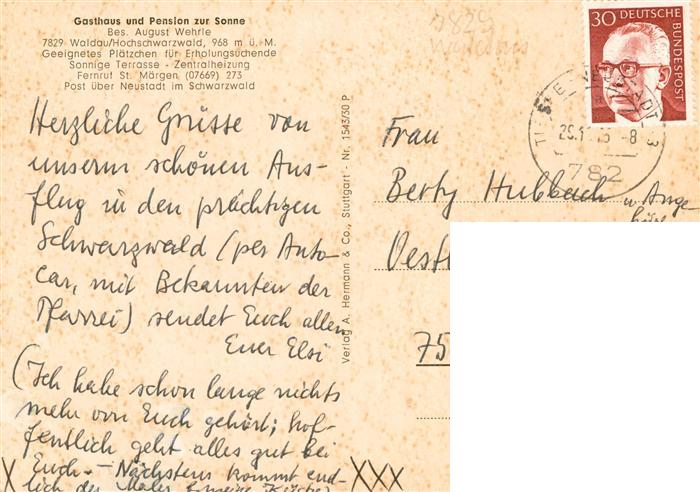 Gasthaus und Pension zur Sonne
Bes. August Wehrle
7829 Waldau/Hochschwarzwald, 968 m ü. M.
Geeignetes Plätzchen für Erholungsuchende
Sonnige Terrasse - Zentralheizung
Fernruf St. Märgen (07669) 273
Post über Neustadt im Schwarzwald
Herzliche Grüsse von
unserm schönen Aus-
flug in den prächtigen
Schwarzwald (per Auto-
car, mit Bekannten der
Pfarrei) sendet Euch allen
Euer Elsi
(Ich habe schon lange nichts
mehr von Euch gehört; hof-
fentlich geht alles gut bei
Euch. - Nächstens kommt end-
lich der Maler
XXX
Verlag A. Hermann & Co., Stuttgart - Nr. 1543/30 P
7829
30 DEUTSCHE
BUNDESPOST
782
Frau
Berty Hubbach u Ange-
75